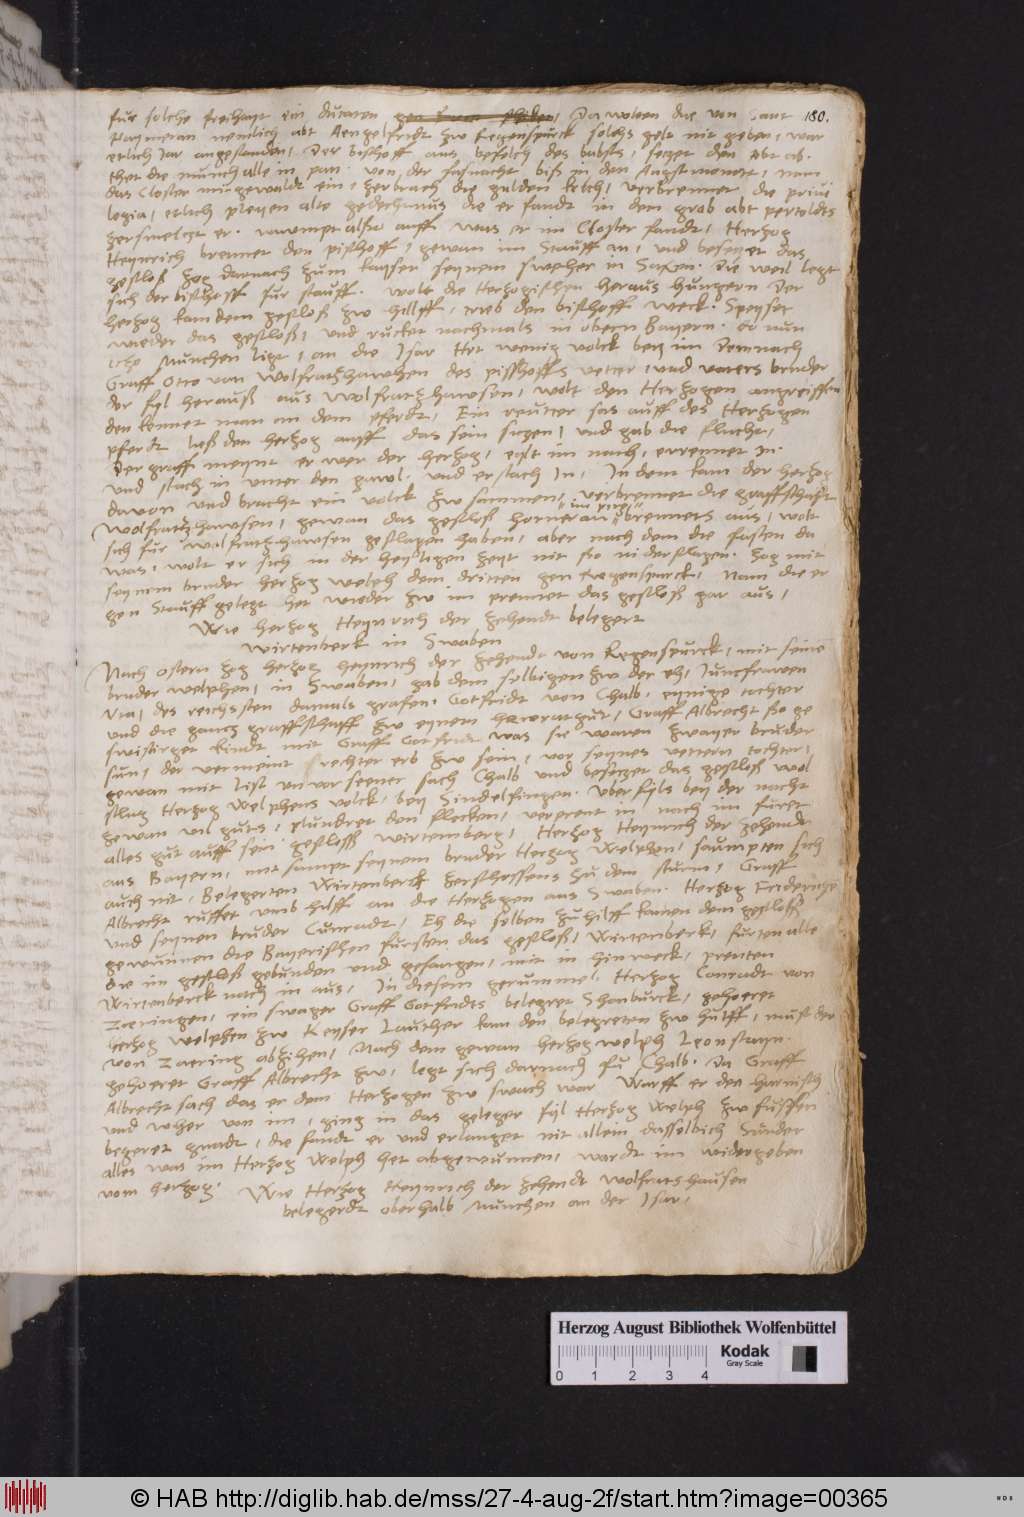 fur solche freihayt ein ducaten Da wolten die von Sant 180.
Haymeran nemlich abt Aengelfridt zw Regenspurck solchs gelt nit geben, war
etlich Jar angestanden, Der bischoff aus befelch des babsts, setzet den Abt ab.
thet die munch alle in pan, von der fasnacht biß in den Augstmonett, nam
das Closter mit gewaldt ein, zerbrach die gulden kelch, verbrennet die privi
legia, etlich pleyen alte gedechtnus die er fandt in dem grab abt pertoldts
zersmeltzt er. raumpt also auff was er im Closter fandt, Hertzog
Heynrich brennet den pischoff, gewan im Stauff an, und besetzet das
gschloß zog darnach zum kayser seynem sweher in Saxen. Die weil legt
sich der bischoff fur stauff. wolt die Hertzogischen heraus hungern Der
hertzog kam dem geschloß zw hilff, trieb den bischoff weck. Speyset
wieder das geschloß, und rucket nachmals in obern Bayern. do nun
itzt Munchen ligt, an die Isar Het wenig volck bey im Demnach
Graff Otto von Wolfratzhawsen des pischoffs vetter, und vaters bruder
der fyl herauß aus Wolfratzhawsen, wolt den Hertzogen angreiffen
den kennet man an dem pferdt, Ein reutter sas auff des Hertzogen
pferdt ließ den hertzog auff das sein sitzen, und gab die flucht,
Der graff meynt er wer der hertzog, eylt im nach, errennet In.
und stach in unter den gawl, und erstach In, In dem kam der hertzog
davon und bracht ein volck zw sammen, verbrennet die graffschafft
Wolfratzhawsen, gewan das geschloß hornenau brennets aus, wolt
sich fur wolfratzhawsen geschlagen haben, aber nach dem die fasten da
was, wolt er sich in der heyligen zeyt nit so niderschlagen. Zog mit
seynem bruder hertzog welph dem dritten gen Regenspurck, Nam die er
gen Stauff gelegt het wieder zw im prennet das geschloß gar aus,
Wie hertzog Heynrich der zehendt belegert
wirtenberk in Swaben
Nach ostern zog hertzog heynrich der zehendt von Regenspurck, mit seinem
bruder welphen, in Swaben, gab dem selbigen zw der eh, Juncfrawen
Uta, des reichsten damals grafen. Gotfridt von Chalb, eynige tochter
und die gantz graffschafft zw eynem heyratgut, Graff Albrecht so ge
swistriget kindt mit Graff Gotfridt was sie waren zwayer bruder
sun, der vermeint rechter erb zw sein, vor seynes vettern tochter,
gewan mit list unversehner sach Chalb und besetzet das geschloß wol
schlug Hertzog Welphens volck, bey Sindelfingen. Uberfyls bey der nacht
gewan vil guts, plundret den flecken, verprent in nach im furet
alles gut auff sein geschloß wirtemberg, Hertzog Heynrich der zehendt
aus Bayern, mit sampt seynem bruder Hertzog Welphen, saumpten sich
auch nit, Belegerten Wirtenberck zerschossens zu dem sturm, Graff
Albrecht ruffet umb hilff an die Hertzogen aus Swaben. Hertzog Fridrich
und seynen bruder Cunradt, Eh die selben zu hilff kamen dem geschloß
gewunnen die Bayerischen fursten das geschloß, Wirtenberck, furten alle
die im geschloß gebunden und gefangen, mit in hinweck, prenten
Wirtenberck nach in aus, In diesem gerummel Hertzog Conradt von
Zaeringen, ein swager Graff Gotfridts belegret Schonburck, gehoeret
hertzog welphen zw Keyser Lauther kam den belegreten zw hulff, must der
von Zaering abzihen, Nach dem gewan hertzog welph Leonstayn.
gehoeret Graff Albrecht zw, legt sich darnach fu Chalb. Da Graff
Albrecht sach das er dem Hertzogen zw swach war Warff er den harnisch
und wher von im, ging in das geleger fyl Hertzog Welph zw fussen
begeret gnadt, die fandt er und erlanget nit allein dasselbich Sunder
alles was im Hertzog Welph het abgewunnen, wardt im widergeben
vom hertzog. Wie Hertzog Heynrich der zehendt wolfratshausen
belegerdt oberhalb Munchen an der Isar,
Herzog August Bibliothek Wolfenbüttel
Kodak
Gray Scale
0 1 2 3 4
© HAB http://diglib.hab.de/mss/27-4-aug-2f/start.htm?image=00365